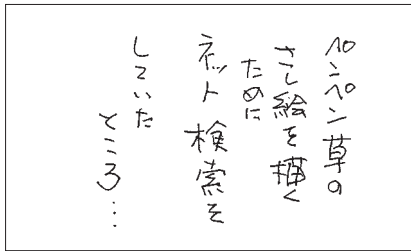 ペンペン草の
さし絵を描く
ために
ネット検索を
していた
ところ…